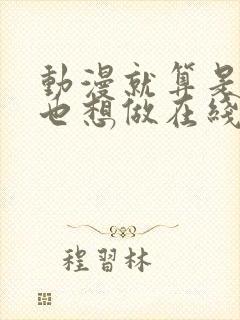 動漫就算是
也想做在綫
程習林